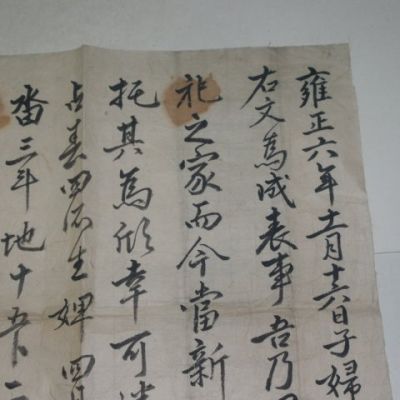 雍正六年十一月十六日子婦
右文爲成表事吾乃
祀之家而今當新
托其爲欣幸可
占春四所生婢四
畓三斗地十五卜二